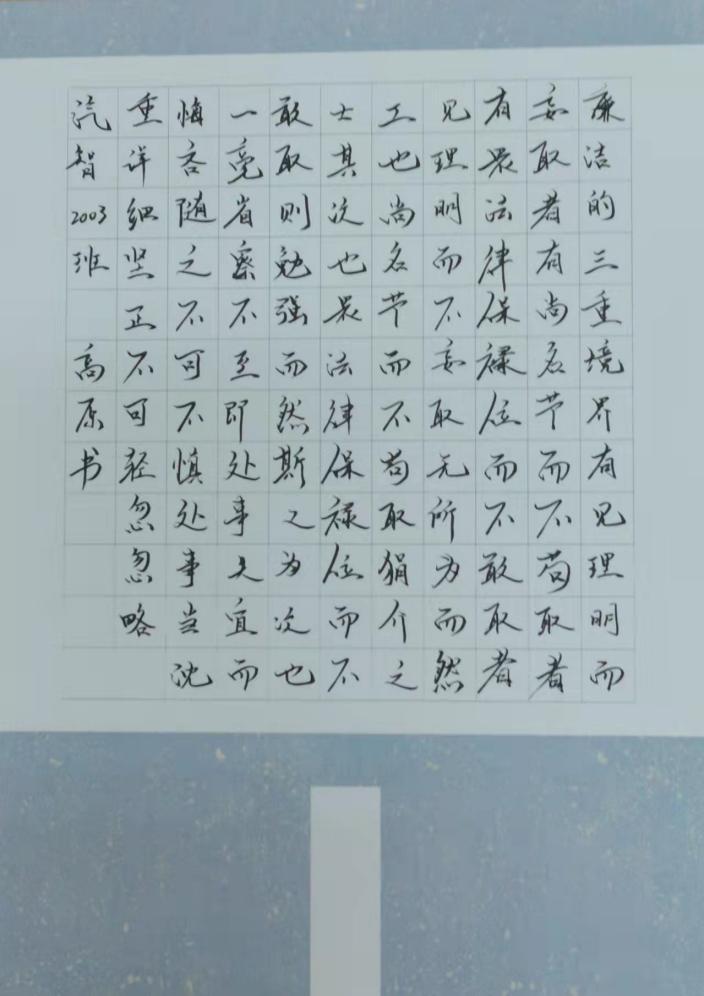 廉洁的三重境界有见理明而
妄取者有尚名节而不苟取者
有畏法律保禄位而不敢取者
见理明而不妄取无所为而然
工也尚名节而不苟取狷介之
士其次也畏法律保禄位而不
敢取则勉强而然斯又为次也
一毫省察不至即处事失宜而
悔吝随之不可不慎处事当沈
重详细坚正不可轻忽忽略
汽智2003班 高原书